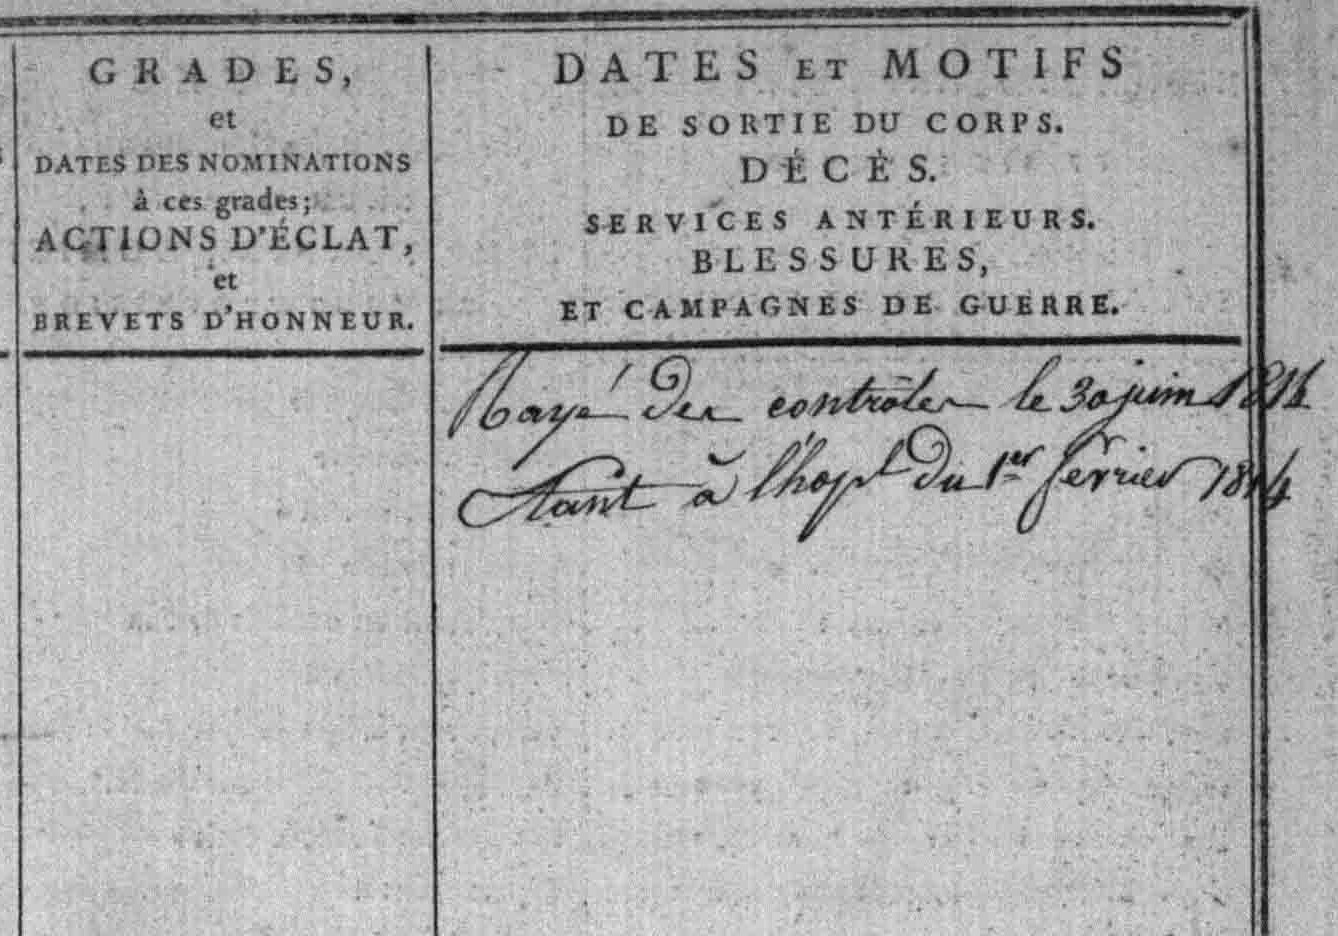 GRADES,
et
DATES DES NOMINATIONS
à ces grades;
ACTIONS D'ÉCLAT,
et
BREVETS D'HONNEUR.
DATES ET MOTIFS
DE SORTIE DU CORPS.
DÉCÈS.
SERVICES ANTÉRIEURS.
BLESSURES,
ET CAMPAGNES DE GUERRE.
Rayé des contrôles le 30 juin 1814
Etant à l'hopl du 1er février 1814